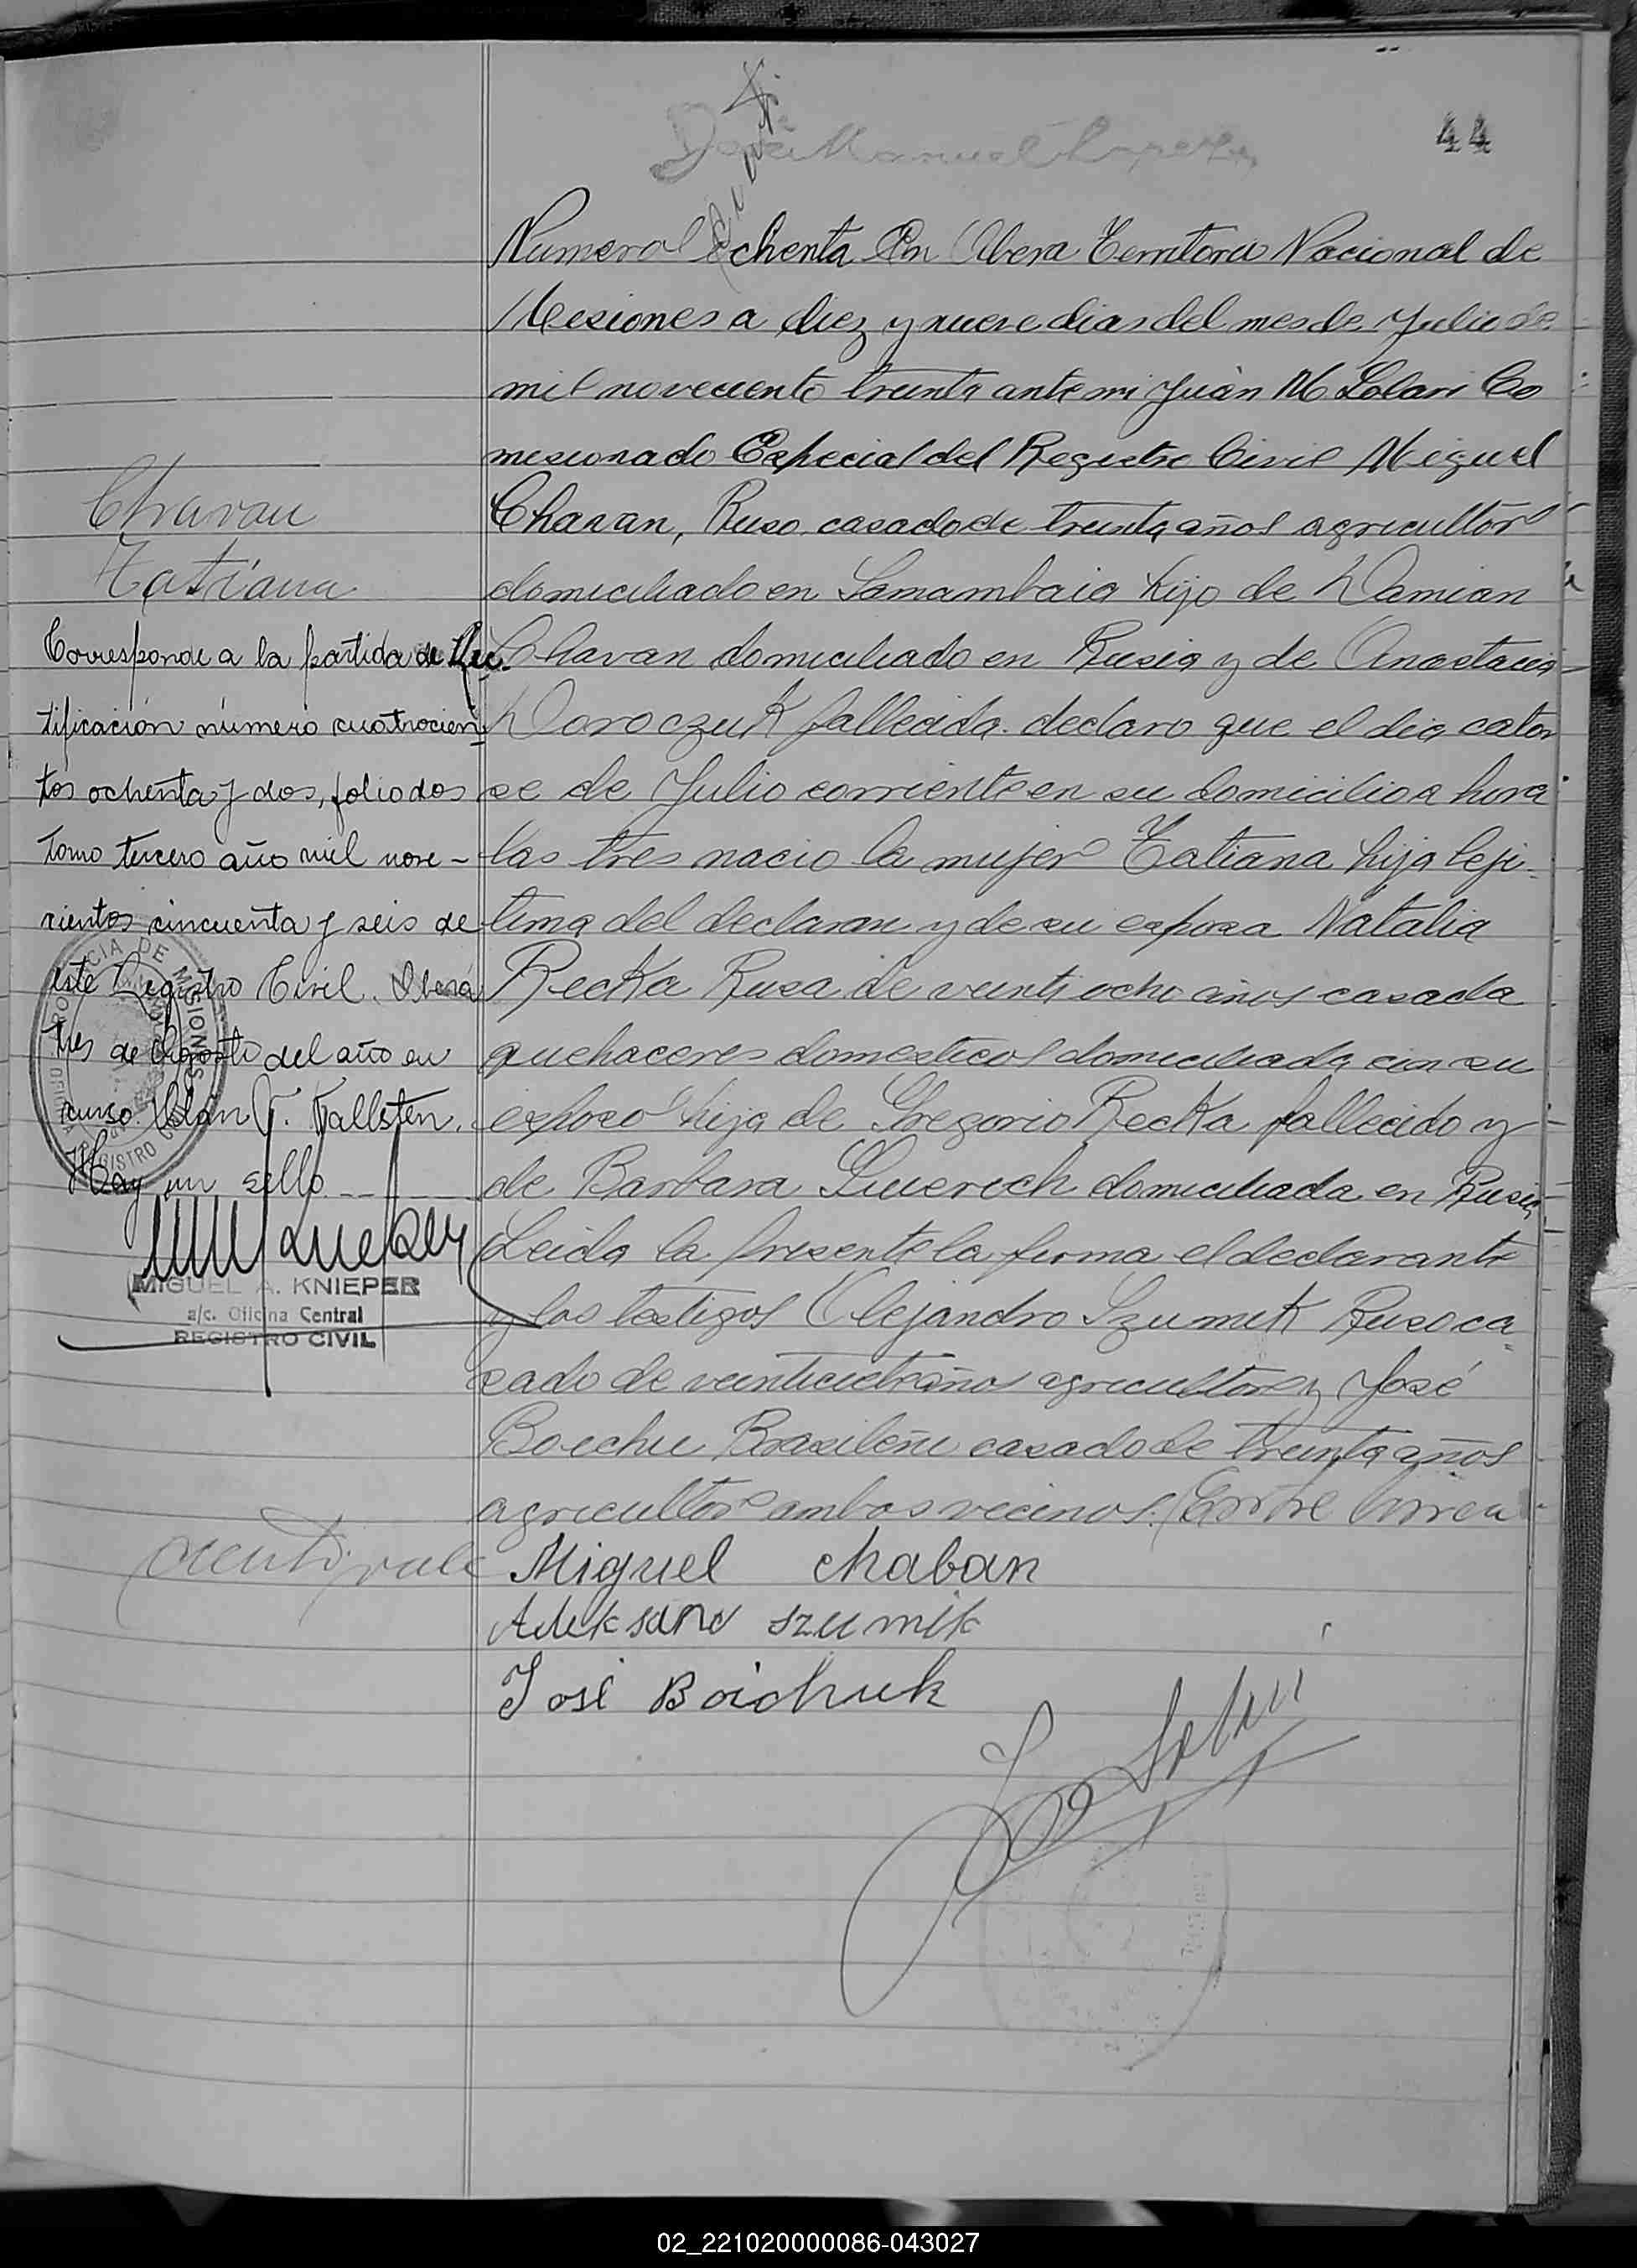 44
Numero Ochenta En Obera Territorio Nacional de
Misiones a diez y nueve dias del mes de Julio de
mil novecciento treinta ante mi Juan M Solari Co
misionado Especial del Registro Civil Miguel
Chavan, Ruso casado de treinta años agricultor
domiciliado en Samambaia hijo de Damian
Chavan domiciliado en Rusia y de Anastacia
Doroczuk fallecida declaro que el dia cator
se de Julio corriente en su domicilio a hora
las tres nacio la mujer Tatiana hija leji-
tima del declaran y de su esposa Natalia
Recka Rusa de veinti ocho años casada
quehaceres domesticos domiciliada con su
esposo hija de Gregorio Recka fallecido y
de Barbara domiciliada en Rusia
Leida la presente la firma el declarante
y los testigos Alejandro Szumik Ruso ca
sado de años agricultor y José
Boichu Brasileño casado de treinta años
agricultor ambos vecinos.
Miguel chaban
Aleksand szumik
José Boichuk
Chavan
Tatiana
Corresponde a la partida de Rec-
tificación número cuatrocien-
tos ochenta y dos, folio dos
tomo tercero año mil nove-
cientos cincuenta y seis de
este Registro Civil. Oberá
tres de Agosto del año en
curso. Kallsten.
Hay un sello
MIGUEL A. KNIEPER
a/c. Oficina Central
REGISTRO CIVIL
02_221020000086-043027